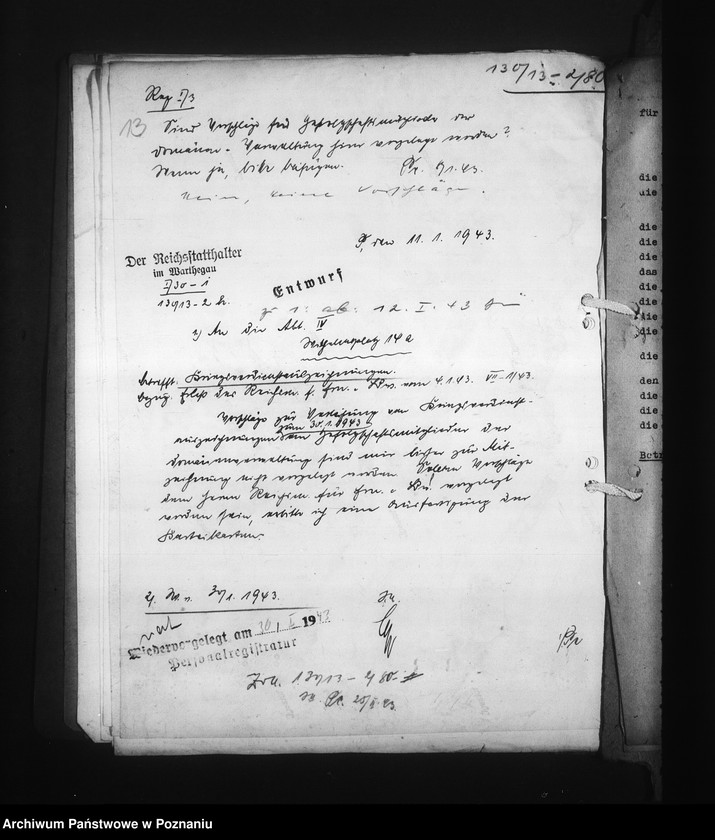 130/13-2/80
Reg I/3
13 Sind Vorschläge für Gefolgschaftsmitglieder der
Domänen-Verwaltung hier vorgelegt worden?
Wenn ja, bitte beifügen. 9.1.43.
Nein, keine Vorschläge.
P, den 11.1.1943.
Der Reichsstatthalter
im Warthegau
I/30-1
130/13-2
Entwurf
zu 1: ab: 12. I. 43
1) An die Abt. IV
Wilhelmsplatz 14a
Betrifft: Kriegsverdienstauszeichnungen.
Bezug: Erlaß des Reichsm. f. Ern. u. Ldw. vom 4.1.43. VII-1/43.
Vorschläge zur Verleihung von Kriegsverdienst-
zum 30.1.1943
auszeichnungen an Gefolgschaftsmitglieder der
Domänenverwaltung sind mir bisher zur Mit-
zeichnung nicht vorgelegt worden. Sollten Vorschläge
dem Herrn Reichsm. für Ern. u. Ldw. vorgelegt
worden sein, erbitte ich eine Ausfertigung der
Karteikarten.
2) W.v. 30/1. 1943.
I.A.
Wiedervorgelegt am 30. I. 1943
Personalregistratur
130/13-2/80
für
die
die
die
die
das
die
die
die
die
den
die
die
die
Betr
Archiwum Państwowe w Poznaniu